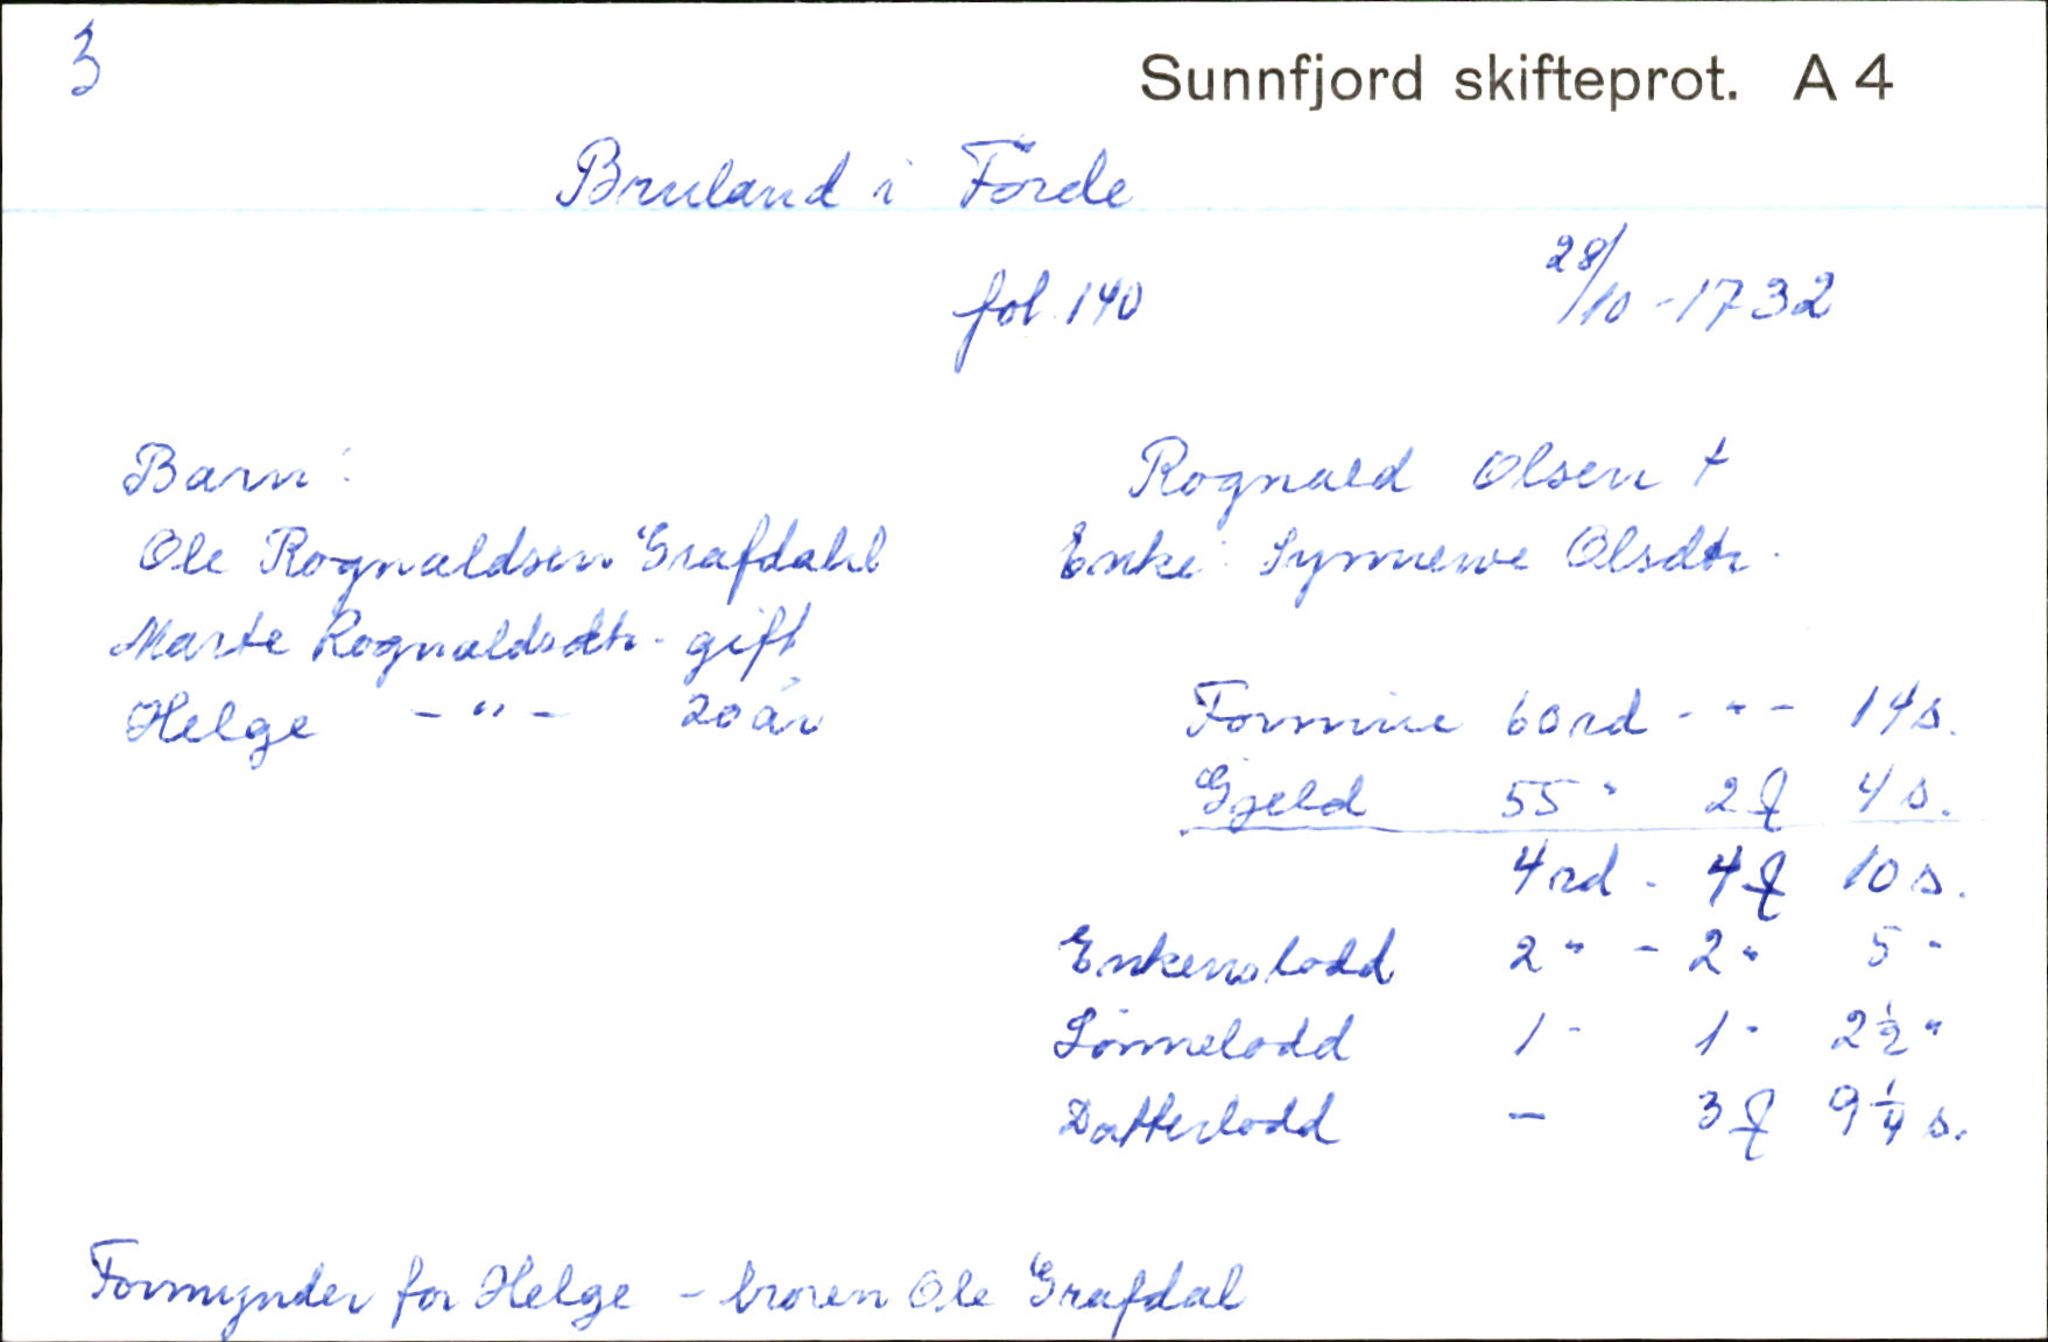 3
Sunnfjord skifteprot. A 4
Bruland i Førde
fol. 140 28/10 - 1732
Barn:
Ole Rognaldsen Grafdahl
Marte Rognaldsdtr - gift
Helge - " - 20 år
Rognald Olsen †
Enke: Synnewe Olsdtr.
Formue 60 rd - " - 14 s.
Gjeld 55 " 2 ƒ 4 s.
4 rd - 4 ƒ 10 s.
Enkenslodd 2 " - 2 " 5 "
Sønnelodd 1 - 1 " 2 1/2 "
Datterlodd - 3 ƒ 9 1/4 s.
Formynder for Helge - broren Ole Grafdal